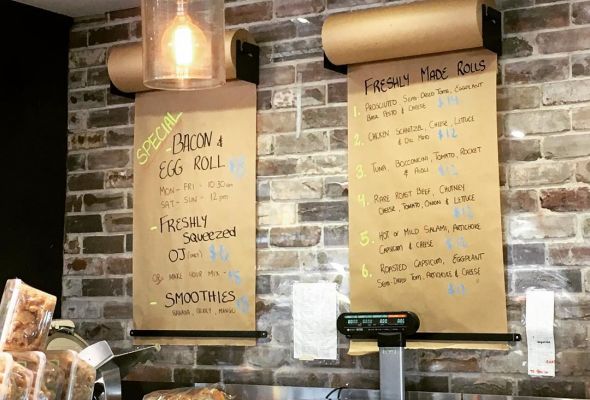 SPECIAL
- BACON &
EGG ROLL $8
MON - FRI - 10:30am
SAT - SUN - 12pm
- FRESHLY
SQUEEZED
OJ
OR MAKE YOUR MIX -
- SMOOTHIES
BANANA, BERRY, MANGO
FRESHLY MADE ROLLS
1. PROSCIUTTO, SEMI-DRIED TOM, EGGPLANT
BASIL PESTO & CHEESE $14
2. CHICKEN SCHNITZEL, CHEESE, LETTUCE
& DILL MAYO $12
3. TUNA, BOCCONCINI, TOMATO, ROCKET
& AIOLI $12
4. RARE ROAST BEEF, CHUTNEY
CHEESE, TOMATO, ONION & LETTUCE
$12
5. HOT OR MILD SALAMI, ARTICHOKE
CAPSICUM & CHEESE $12
6. ROASTED CAPSICUM, EGGPLANT
SEMI-DRIED TOM, ARTICHOKE & CHEESE